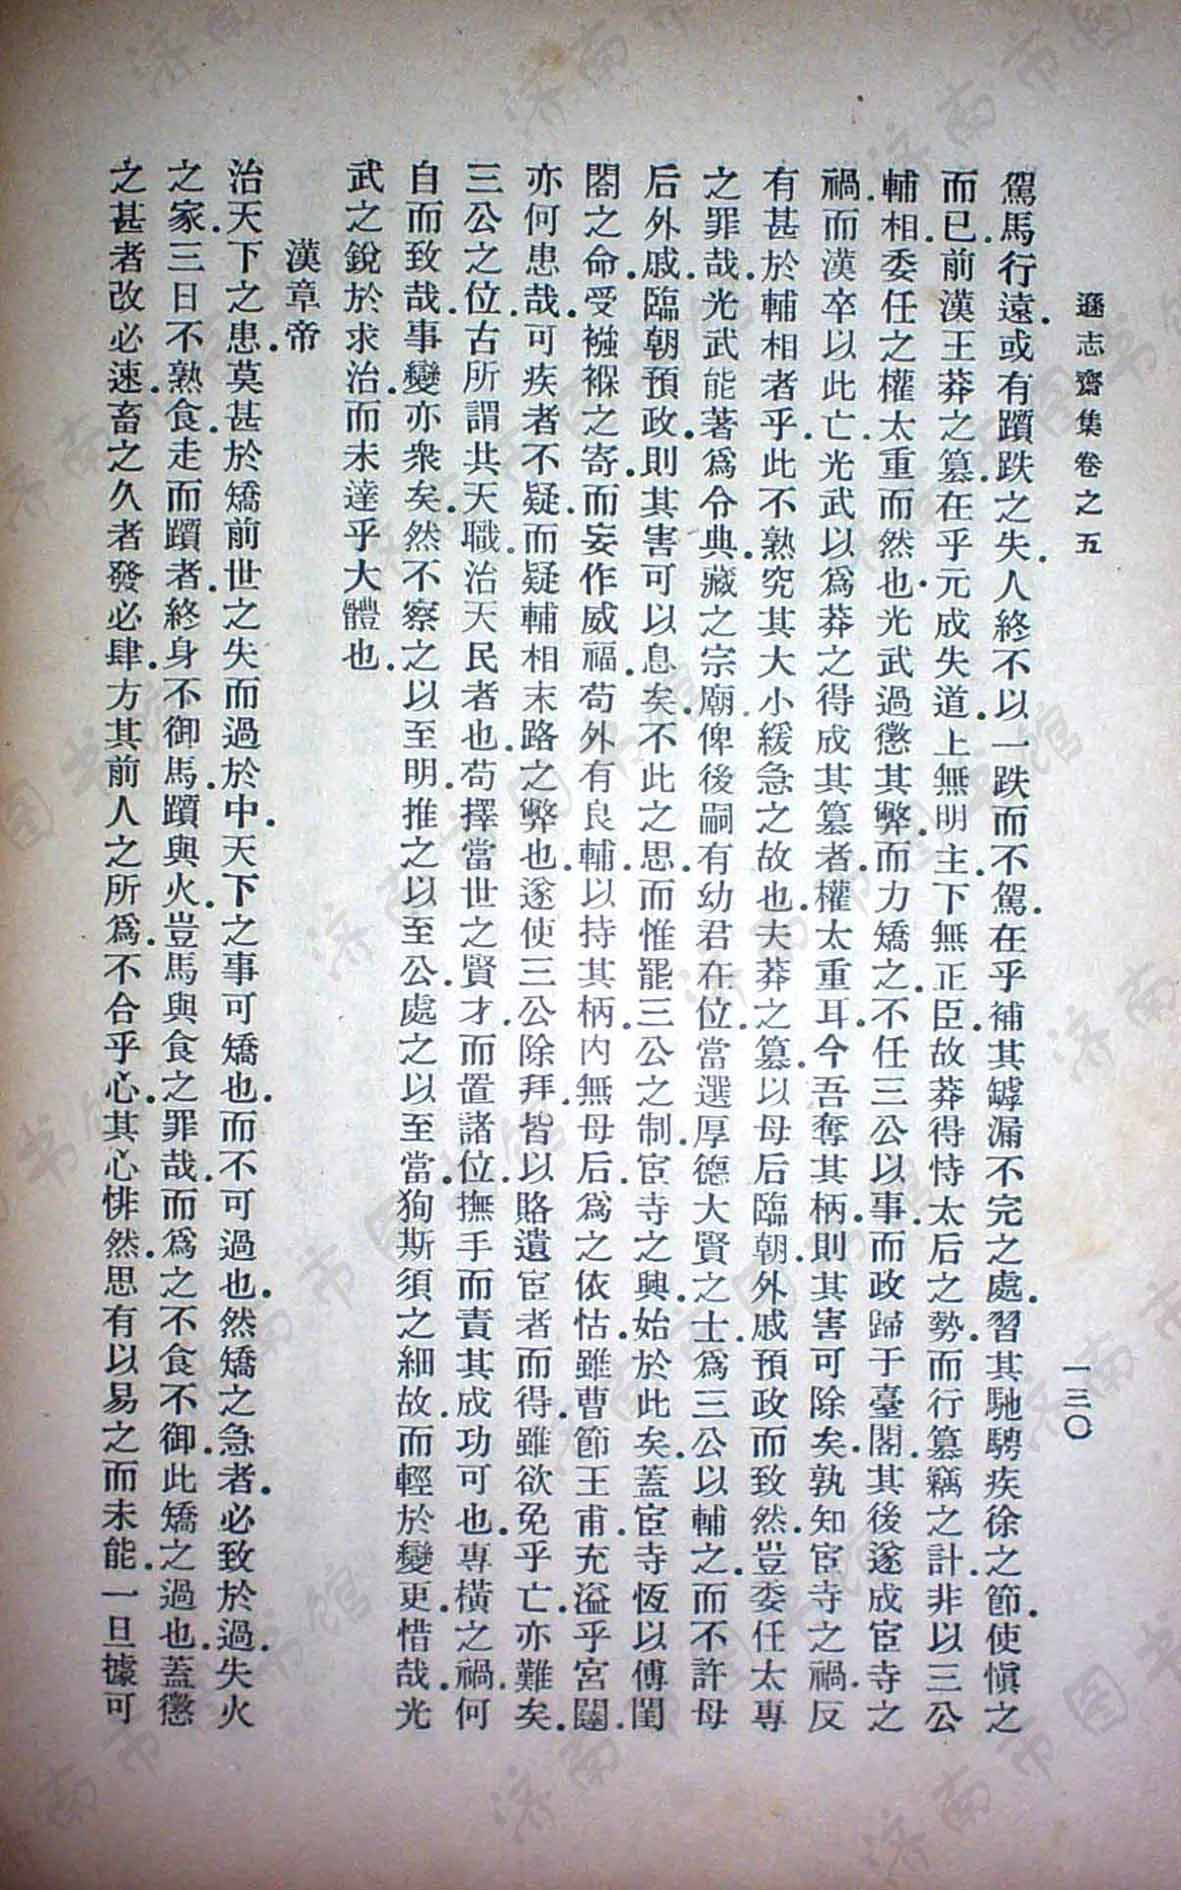 遜志齋集卷之五
一三〇
駕馬行遠.或有躓跌之失.人終不以一跌而不駕.在乎補其罅漏不完之處.習其馳騁疾徐之節.使愼之
而已.前漢王莽之篡.在乎元成失道.上無明主.下無正臣.故莽得恃太后之勢.而行篡竊之計.非以三公
輔相.委任之權太重而然也.光武過懲其弊.而力矯之.不任三公以事.而政歸于臺閣.其後遂成宦寺之
禍.而漢卒以此亡.光武以爲莽之得成其篡者.權太重耳.今吾奪其柄.則其害可除矣.孰知宦寺之禍.反
有甚於輔相者乎.此不熟究其大小緩急之故也.夫莽之篡.以母后臨朝.外戚預政而致然.豈委任太專
之罪哉.光武能著爲令典.藏之宗廟.俾後嗣有幼君在位.當選厚德大賢之士.爲三公以輔之.而不許母
后外戚.臨朝預政.則其害可以息矣.不此之思.而惟罷三公之制.宦寺之興.始於此矣.蓋宦寺恆以傅閨
閤之命.受襁褓之寄.而妄作威福.苟外有良輔.以持其柄.內無母后.爲之依怙.雖曹節王甫.充溢乎宮闥.
亦何患哉.可疾者不疑.而疑輔相末路之弊也.遂使三公除拜.皆以賂遺宦者而得.雖欲免乎亡.亦難矣.
三公之位.古所謂共天職.治天民者也.苟擇當世之賢才.而置諸位.撫手而責其成功可也.專橫之禍.何
自而致哉.事變亦衆矣.然不察之以至明.推之以至公.處之以至當.狥斯須之細故.而輕於變更.惜哉.光
武之銳於求治.而未達乎大體也.
漢章帝
治天下之患.莫甚於矯前世之失.而過於中.天下之事可矯也.而不可過也.然矯之急者.必致於過.失火
之家.三日不熟食.走而躓者.終身不御馬.躓與火.豈馬與食之罪哉.而爲之不食不御.此矯之過也.蓋懲
之甚者改必速.畜之久者發必肆.方其前人之所爲.不合乎心.其心悱然.思有以易之而未能.一旦據可